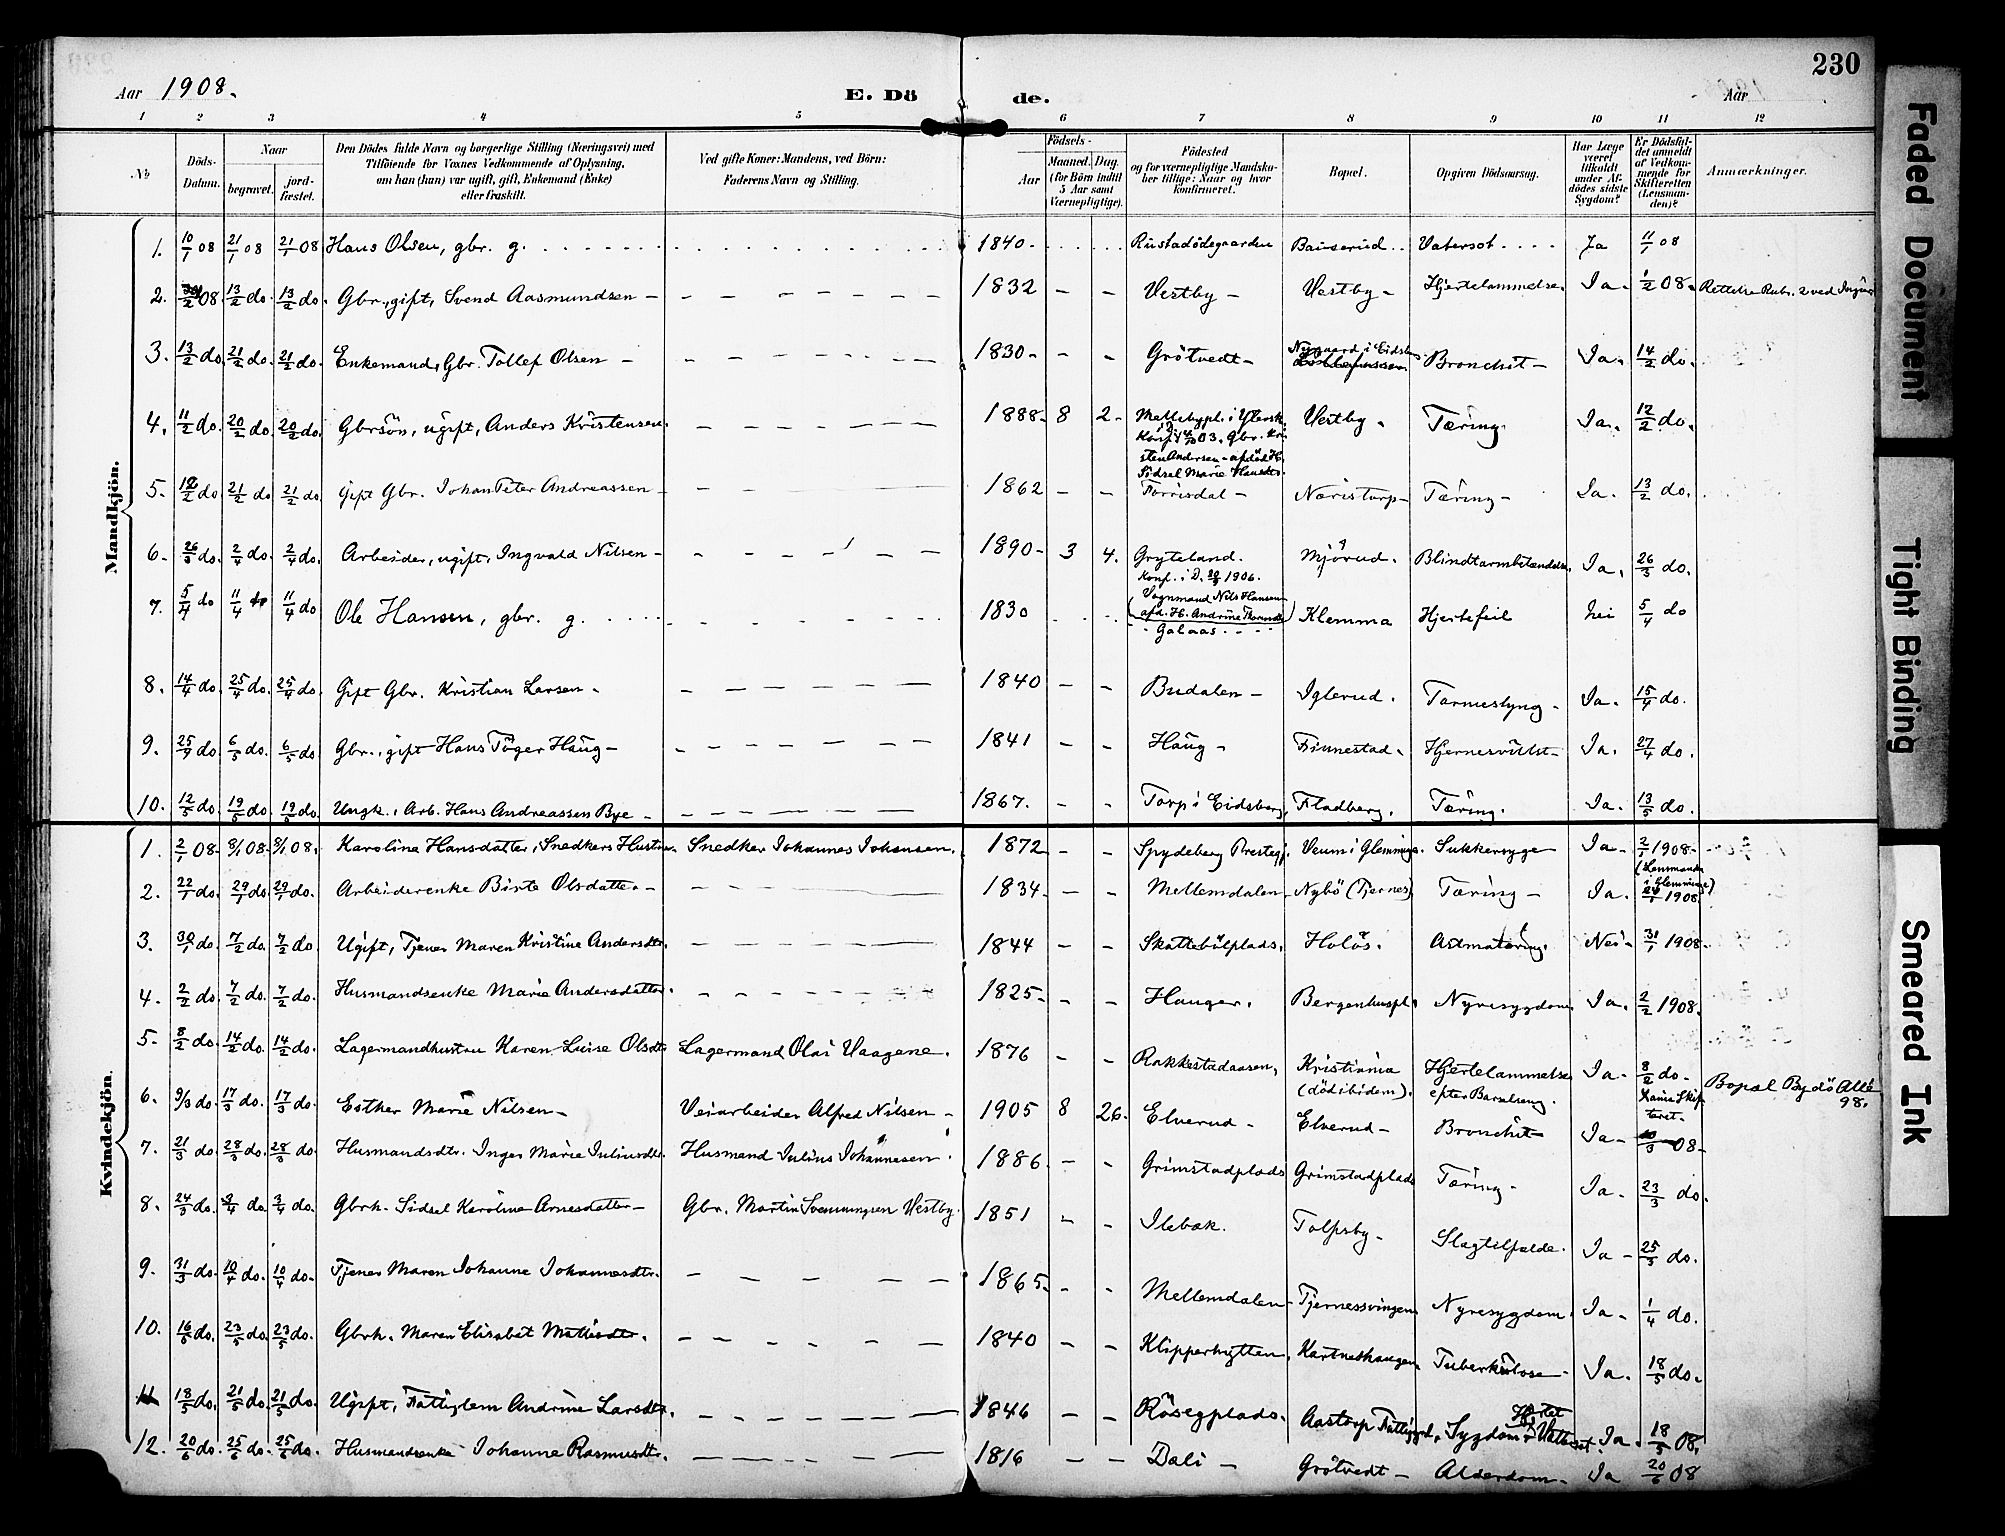 230
Aar 1908.
E. Döde.
Aar
1 2 3 4 5 6 7 8 9 10 11 12
No
Döds-Datum.
Naar begravet. jordfæstet.
Den Dödes fulde Navn og borgerlige Stilling (Næringsvei) med Tilföiende for Voxnes Vedkommende af Oplysning, om han (hun) var ugift, gift, Enkemand (Enke) eller fraskilt.
Ved gifte Koner: Mandens, ved Börn: Faderens Navn og Stilling.
Födsels- Aar Maaned. Dag. (for Börn indtil 5 Aar samt Værnepligtige).
Födested og for værnepligtige Mandskaber tillige: Naar og hvor konfirmeret.
Bopæl.
Opgiven Dödsaarsag.
Har Læge været tilkaldt under Afdödes sidste Sygdom?
Er Dödsfaldet anmeldt af Vedkommende for Skifteretten (Lensmanden)?
Anmærkninger.
Mandkjön.
1. 10/1 08 21/1 08 21/1 08 Hans Olsen, gbr. g. 1840 Rustadödegaarden Vatersot Ja 11/1 08
2. 08. 13/2 do. 13/2 do. Gbr., gift, Svend Aasmundsen 1832 Vestby Vestby Hjertelammelse. Ja. 1/2 08. Rettelse Rubr. 2 ved
3. 13/2 do. 21/2 do. 21/2 do. Enkemand, Gbr. Tollef Olsen 1830 Grötvedt Nygaard i Eidsberg Bronchit Ja. 14/2 do.
4. 11/2 do. 20/2 do. 20/2 do. Gbrsön, ugift, Anders Kristensen. 1888 8 2 Vestby. Tæring. Ja. 12/2 do.
Sidsel Marie
5. 12/2 do 21/2 do 21/2 do. Gift Gbr. Johan Peter Andreassen 1862 Torrisdal Næristorp Tæring Ja. 13/2 do.
6. 26/3 do. 2/4 do. 2/4 do. Arbeider, ugift, Ingvald Nilsen 1890 3 4. Gryteland. Mjörud. Blindtarmbetændelse. Ja. 26/3 do.
Konf. i D. 1906.
Vognmand Nils Hansen
7. 5/4 do 11/4 do 11/4 do Ole Hansen, gbr. g. 1830 Galaas Klemma Hjertefeil Nei 5/4 do
8. 14/4 do. 25/4 do. 25/4 do. Gift Gbr. Kristian Larsen. 1840 Budalen Iglerud. Tarmeslyng Ja. 15/4 do.
9. 25/4 do. 6/5 do. 6/5 do Gbr., gift Hans Töger Haug 1841 Haug Finnestad. Hjernesvulst Ja. 27/4 do.
10. 12/5 do. 19/5 do. 19/5 do. Ungk., Arb. Hans Andreassen Bye 1867. Torp i Eidsberg, Fladberg. Tæring. Ja. 13/5 do.
Kvindekjön.
1. 2/1 08. 8/1 08. 8/1 08. Karoline Hansdatter, Snedkers Hustru Snedker Johannes Johansen. 1872 Spydeberg Prestegj. Veum i Glemminge. Sukkersyge Ja 2/1 1908 (Lensmanden i Glemminge)
2. 22/1 do. 29/1 do. 29/1 do. Arbeiderenke Birte Olsdatter 1834 Mellemdalen Nybö (Tjernes) Tæring Ja. 1908.
3. 30/1 do. 7/2 do. 7/2 do Ugift, Tjener Maren Kristine Andersdtr. 1844 Skattebölplads. Holös. Astmatæring. Nei 31/1 1908.
4. 2/2 do. 7/2 do. 7/2 do. Husmandsenke Marie Andersdatter. 1825 Hauger. Bergenhuspl. Nyresygdom Ja. 2/2 1908.
5. 8/2 do. 14/2 do. 14/2 do. Lagermandhustru Karen Luise Olsdtr. Lagermand Olai Haagene. 1876 Rakkestadaasen. Kristiania (död ibidem). Hjertelammelse efter Barselseng. Ja 8/2 do. Xania Skifteret. Bopæl Bygdö Allé 98.
6. 9/3 do. 17/3 do. 17/3 do. Esther Marie Nilsen Veiarbeider Alfred Nilsen 1905 8 26. Elverud Elverud Bronchit Ja 10/3 08
7. 21/3 do. 28/3 do. 28/3 do. Husmandsdtr. Inger Marie Juliusdtr. Husmand Julius Johannesen 1886 Grimstadplads Grimstadplads Tæring Ja. 23/3 do.
8. 24/3 do. 3/4 do. 3/4 do. Gbrk. Sidsel Karoline Arnesdatter Gbr. Martin Svenningsen Vestby. 1851 Ilebæk. Tolfsby Slagtilfælde. Ja 25/3 do.
9. 31/3 do. 10/4 do. 10/4 do Tjener Maren Johanne Johannesdtr. 1865. Mellemdalen Tjernessvingen Nyresygdom. Ja 1/4 do.
10. 16/5 do. 23/5 do. 23/5 do. Gbrk. Maren Elisabet Mathisdtr. 1840 Klipperhytten. Kartneshaugen Tuberkulose Ja. 18/5 do.
11 18/5 do. 21/5 do. 21/5 do. Ugift, Fattiglem Andrine Larsdtr. 1846 Rösegplads. Aastorp Fattiggd. Hjertet Sygdom i Vattersot Ja. 18/5 08.
12. 20/6 do. 25/6 do. 25/6 do. Husmandsenke Johanne Rasmusdtr. 1816 Dali Grötvedt Alderdom Ja 20/6 08
Faded Document
Tight Binding
Smeared Ink